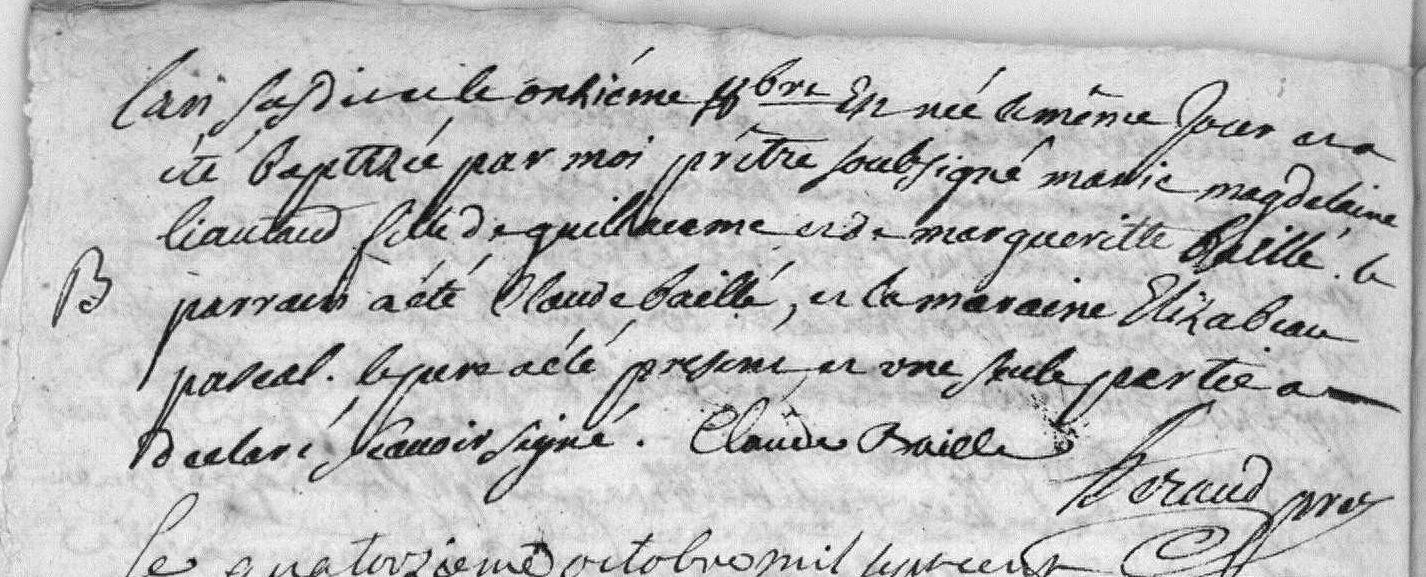 l'an susdit et le onzième 8bre Est née le même jour et a
été baptizée par moi prêtre soubsigné marie magdelaine
liautaud fille de guillaume et de margueritte Baillé. le
B parrain a été Claude Baillé, et la maraine Elizabeau
pascal. le pere a été present et une seule partie a
declaré scavoir signé. Claude Baille
Beraud pre
Le quatorzieme octobre mil sept cent